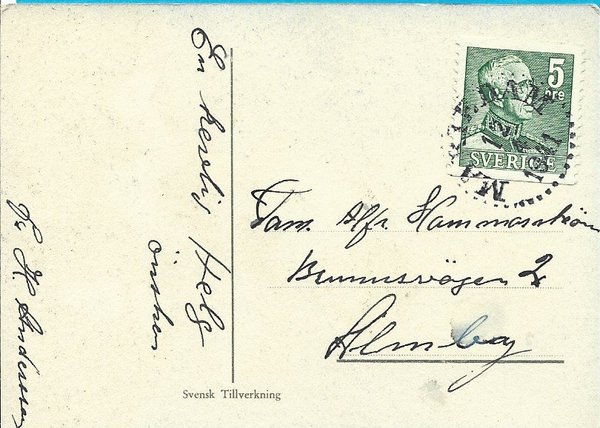 En herlig Helg
önskar
Fr. H. Andersson
5
öre
SVERIGE
12
4
1941
Fam. Alfr. Hammarström
Brunnsvägen 2
Almby
Svensk Tillverkning